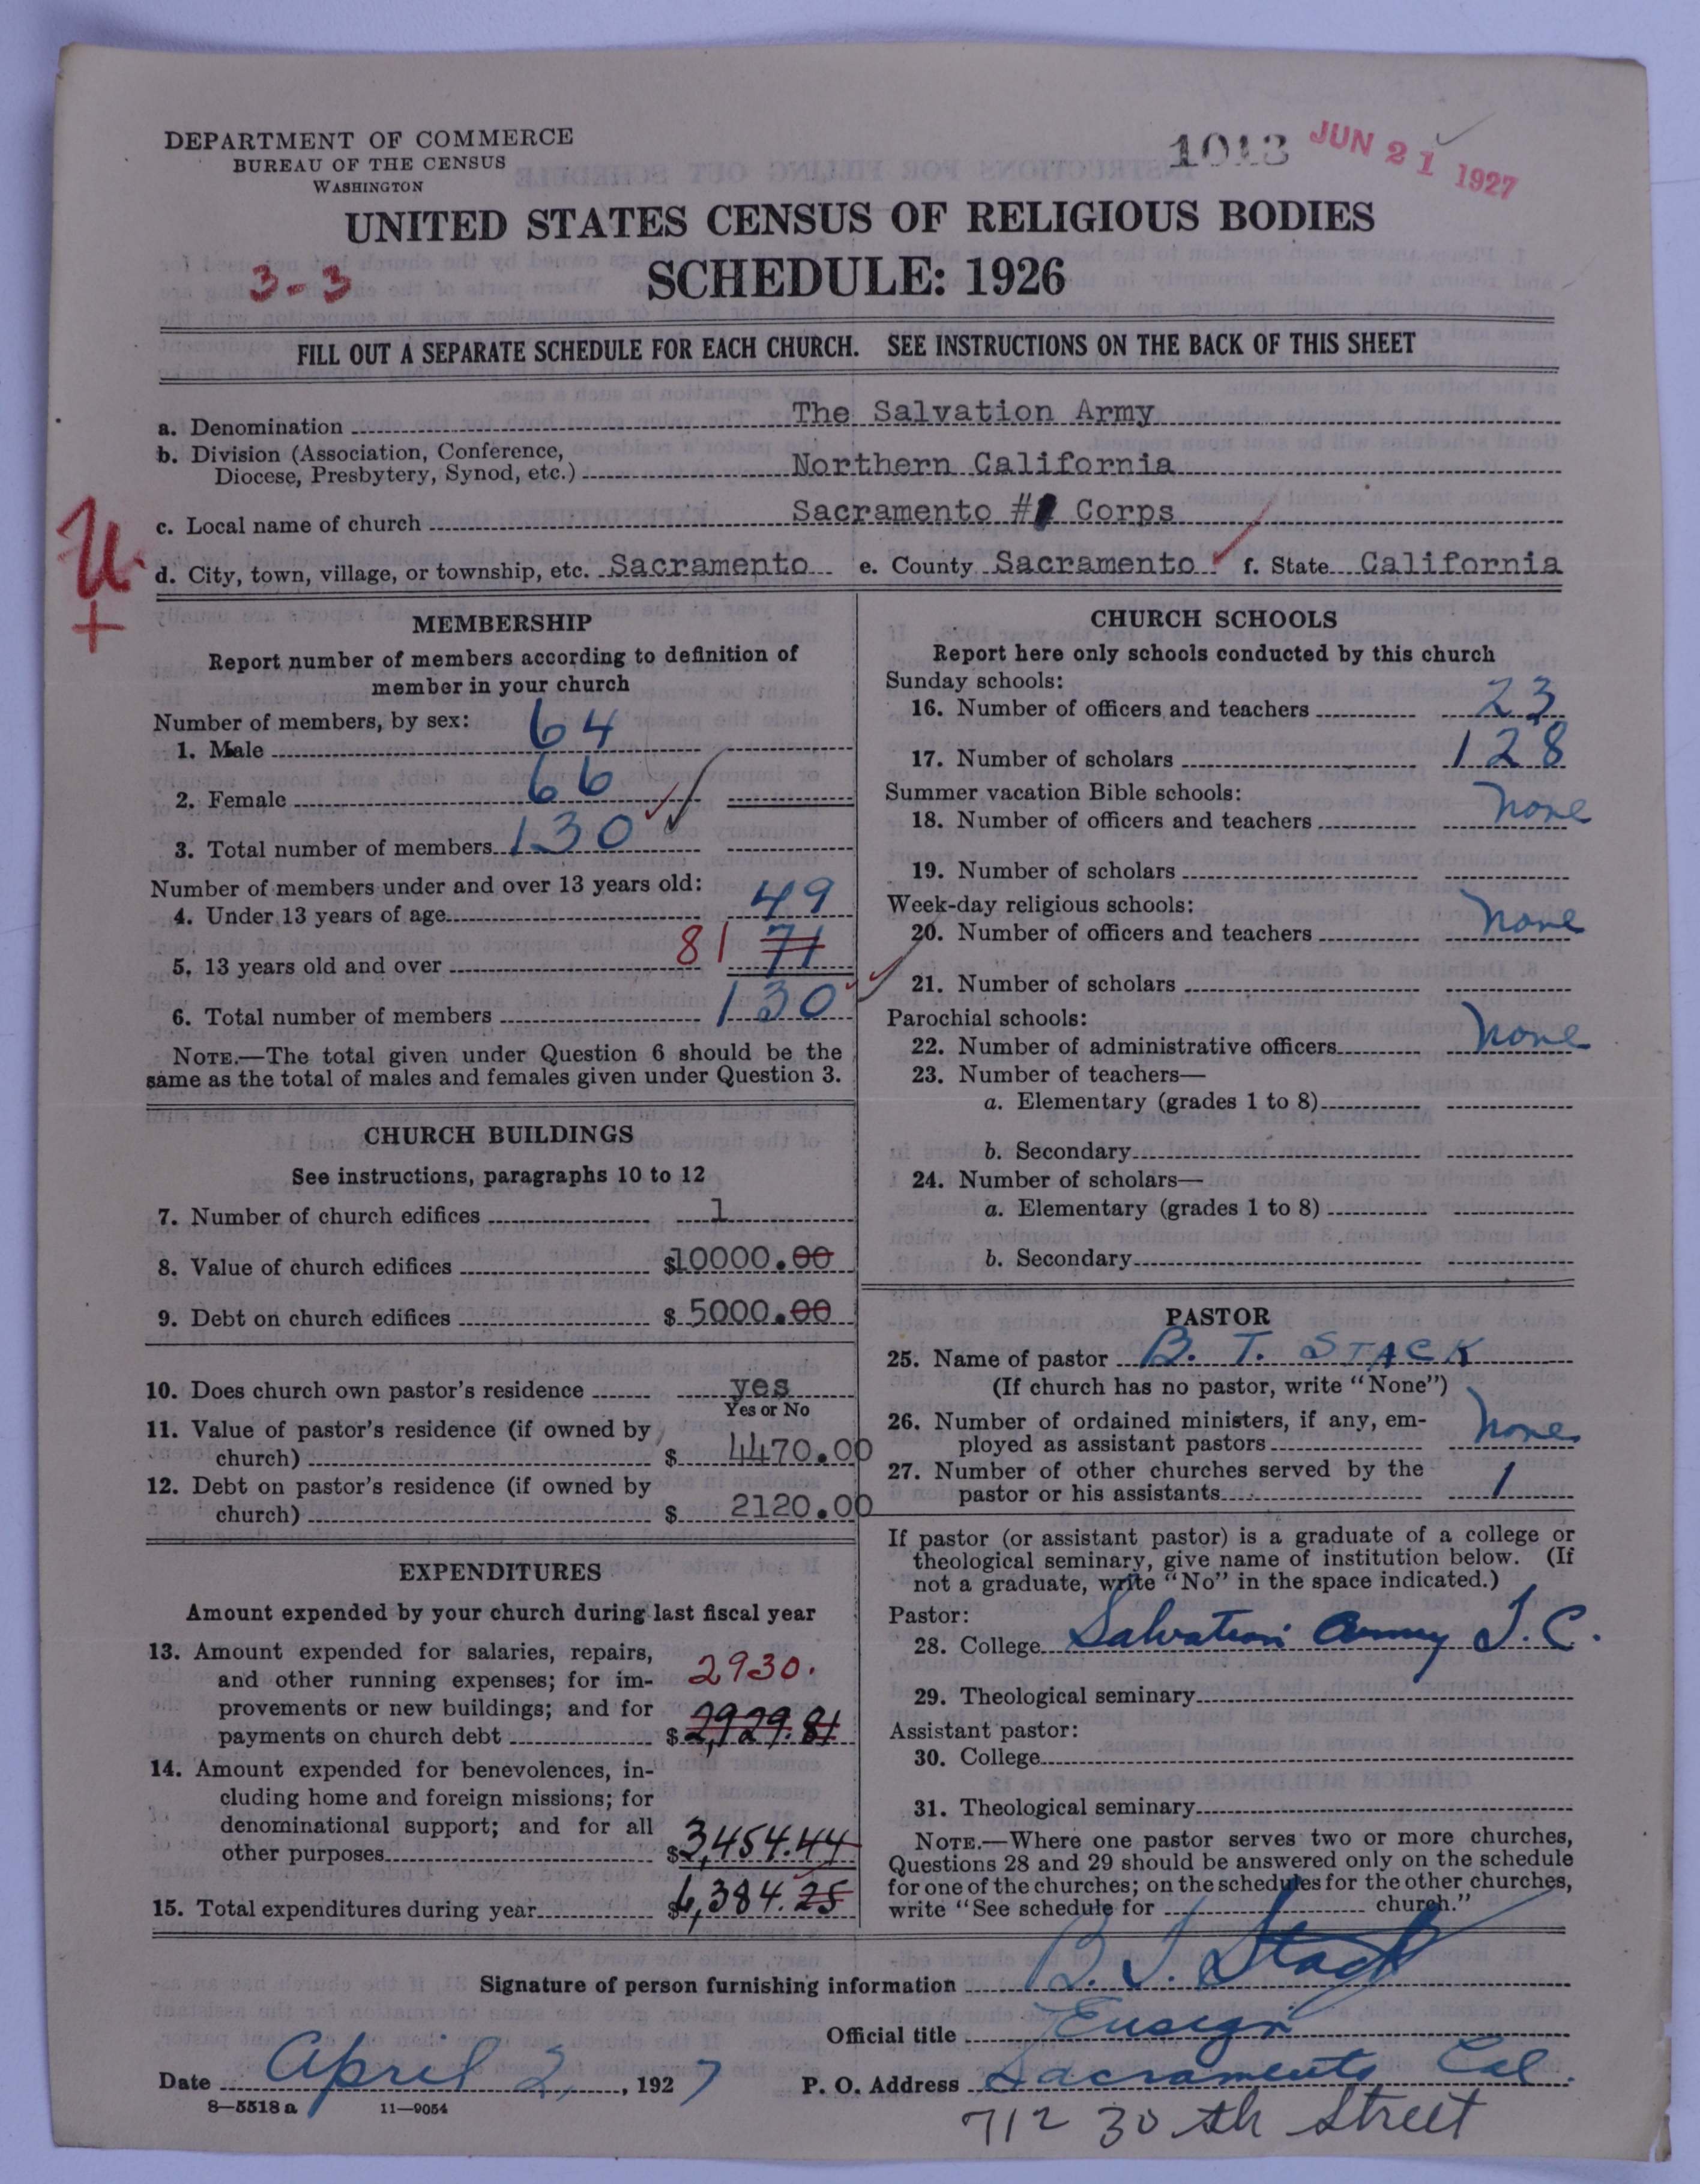 DEPARTMENT OF COMMERCE
BUREAU OF THE CENSUS
WASHINGTON
1013
JUN 21 1927
UNITED STATES CENSUS OF RELIGIOUS BODIES
3-3
SCHEDULE: 1926
FILL OUT A SEPARATE SCHEDULE FOR EACH CHURCH. SEE INSTRUCTIONS ON THE BACK OF THIS SHEET
a. Denomination The Salvation Army
b. Division (Association, Conference,
Diocese, Presbytery, Synod, etc.) Northern California
c. Local name of church Sacramento #1 Corps
U
+
d. City, town, village, or township, etc. Sacramento e. County Sacramento f. State California
MEMBERSHIP
Report number of members according to definition of
member in your church
Number of members, by sex:
1. Male 64
2. Female 66
3. Total number of members 130
Number of members under and over 13 years old:
4. Under 13 years of age 49
5. 13 years old and over 81 71
6. Total number of members 130
NOTE.—The total given under Question 6 should be the
same as the total of males and females given under Question 3.
CHURCH BUILDINGS
See instructions, paragraphs 10 to 12
7. Number of church edifices 1
8. Value of church edifices $10000.00
9. Debt on church edifices $5000.00
10. Does church own pastor's residence yes
Yes or No
11. Value of pastor's residence (if owned by
church) $4470.00
12. Debt on pastor's residence (if owned by
church) $2120.00
EXPENDITURES
Amount expended by your church during last fiscal year
13. Amount expended for salaries, repairs,
and other running expenses; for im- 2930.
provements or new buildings; and for
payments on church debt $2,929.81
14. Amount expended for benevolences, in-
cluding home and foreign missions; for
denominational support; and for all
other purposes $3,454.44
15. Total expenditures during year $6,384.25
CHURCH SCHOOLS
Report here only schools conducted by this church
Sunday schools:
16. Number of officers and teachers 23
17. Number of scholars 128
Summer vacation Bible schools:
18. Number of officers and teachers None
19. Number of scholars
Week-day religious schools:
20. Number of officers and teachers None
21. Number of scholars
Parochial schools:
22. Number of administrative officers None
23. Number of teachers—
a. Elementary (grades 1 to 8)
b. Secondary
24. Number of scholars—
a. Elementary (grades 1 to 8)
b. Secondary
PASTOR
25. Name of pastor B. T. STACK
(If church has no pastor, write "None")
26. Number of ordained ministers, if any, em-
ployed as assistant pastors None
27. Number of other churches served by the
pastor or his assistants 1
If pastor (or assistant pastor) is a graduate of a college or
theological seminary, give name of institution below. (If
not a graduate, write "No" in the space indicated.)
Pastor:
28. College Salvation Army T.C.
29. Theological seminary
Assistant pastor:
30. College
31. Theological seminary
NOTE.—Where one pastor serves two or more churches,
Questions 28 and 29 should be answered only on the schedule
for one of the churches; on the schedules for the other churches,
write "See schedule for church."
Signature of person furnishing information B. T. Stack
Official title Ensign
Date April 2, 1927 P. O. Address Sacramento Cal.
8—5518 a 11—9054
712 30th Street